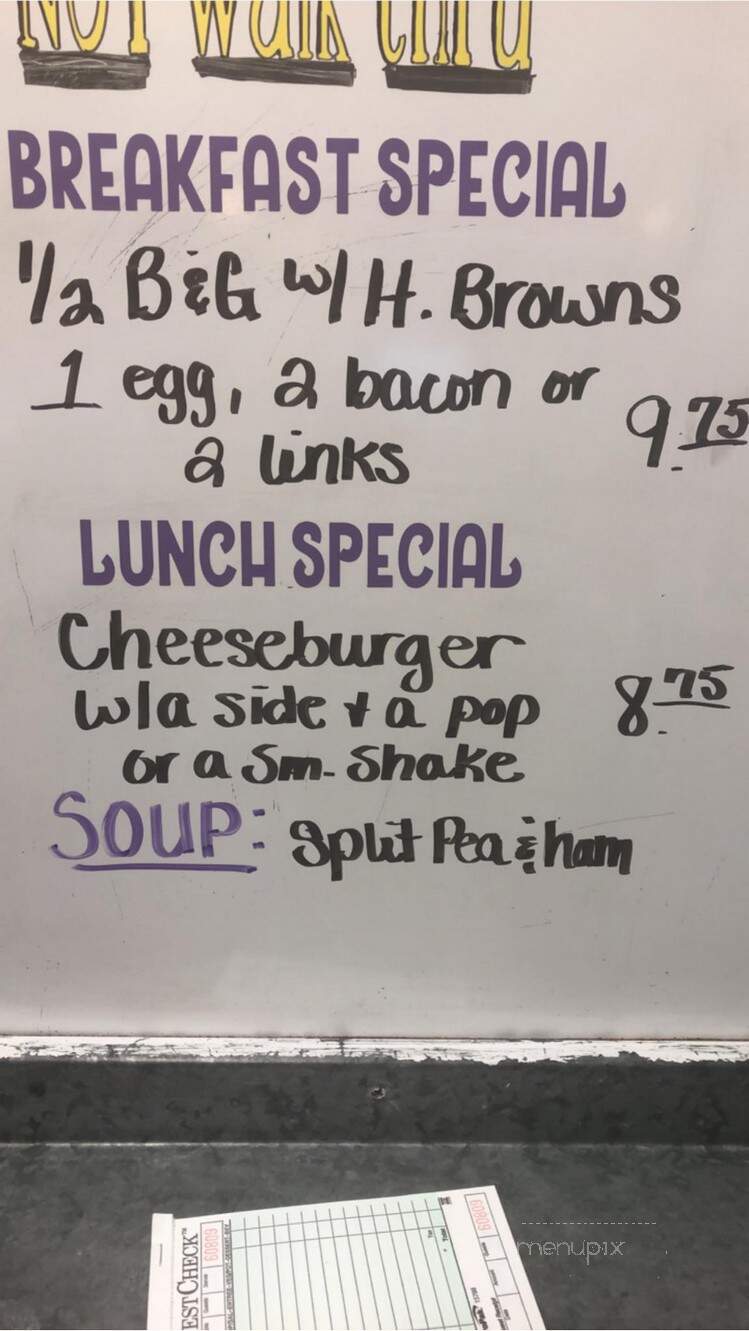 Not walk thru
BREAKFAST SPECIAL
1/2 B&G w/ H. Browns
1 egg, 2 bacon or
2 links
9.75
LUNCH SPECIAL
Cheeseburger
w/a side + a pop
or a Sm. Shake
8.75
SOUP: Split Pea & ham
ESTCHECK™
60809
60809
menupix